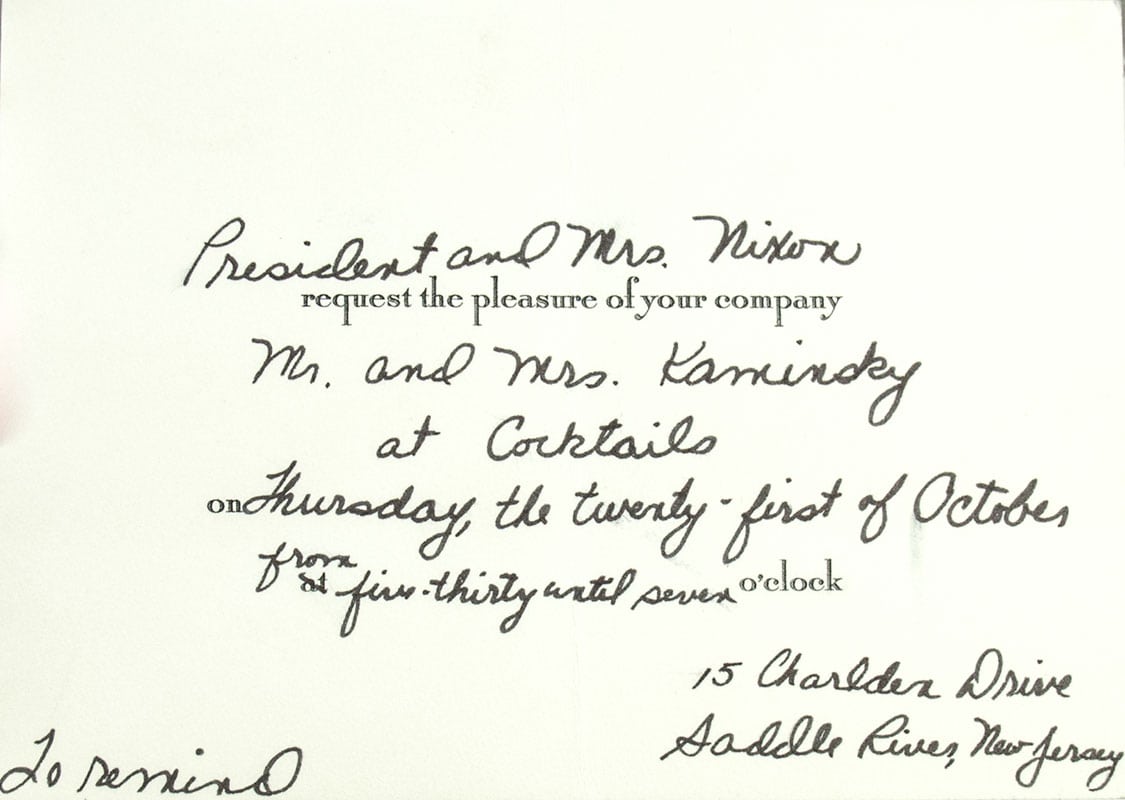 President and Mrs. Nixon
request the pleasure of your company
Mr. and Mrs. Kaminsky
at Cocktails
on Thursday, the twenty-first of October
from
at five-thirty until seven o'clock
15 Charlden Drive
Saddle River, New Jersey
To remind